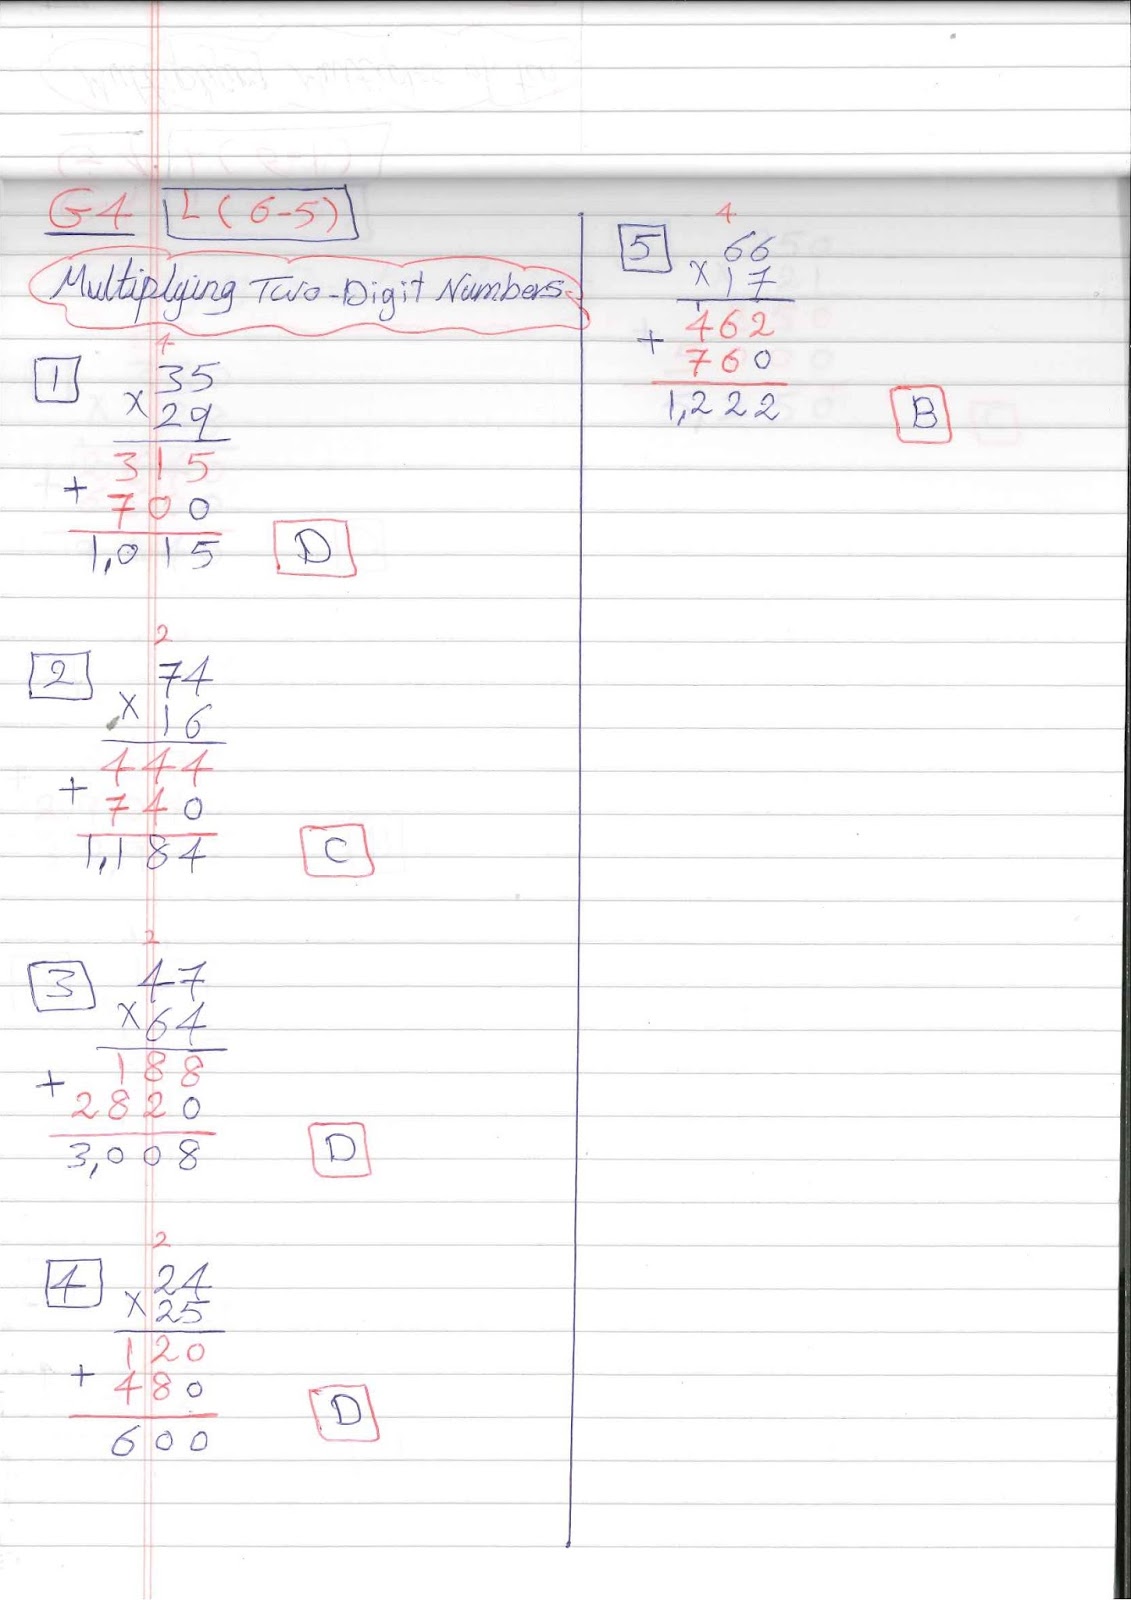 G4 L(6-5)
Multiplying Two-Digit Numbers.
1
4
35
x 29
315
+ 700
1,015
D
2
2
74
x 16
444
+ 740
1,184
C
3
2
47
x 64
188
+ 2820
3,008
D
4
2
24
x 25
120
+ 480
600
D
5
4
66
x 17
1
462
+ 760
1,222
B